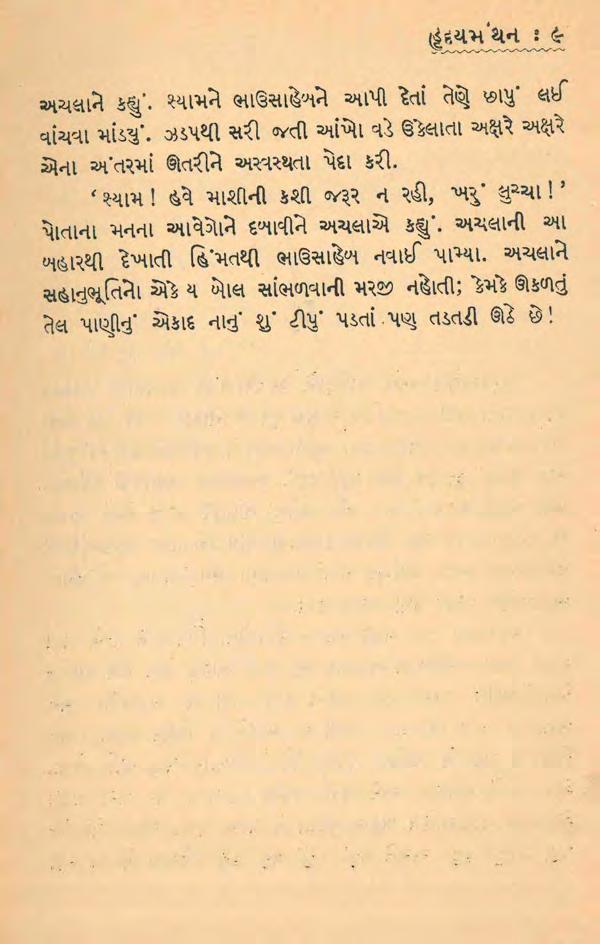 હૃદયમંથન : ૯
અચલાને કહ્યું. શ્યામને ભાઉસાહેબને આપી દેતાં તેણે છાપું લઈ
વાંચવા માંડ્યું. ઝડપથી સરી જતી આંખો વડે ઉકેલાતા અક્ષરે અક્ષરે
એના અંતરમાં ઊતરીને અસ્વસ્થતા પેદા કરી.
‘ શ્યામ ! હવે માશીની કશી જરૂર ન રહી, ખરું લુચ્ચા ! ’
પોતાના મનના આવેગોને દબાવીને અચલાએ કહ્યું. અચલાની આ
બહારથી દેખાતી હિંમતથી ભાઉસાહેબ નવાઈ પામ્યા. અચલાને
સહાનુભૂતિનો એકે ય બોલ સાંભળવાની મરજી નહોતી; કેમકે ઊકળતું
તેલ પાણીનું એકાદ નાનું શું ટીપું પડતાં પણ તડતડી ઊઠે છે !